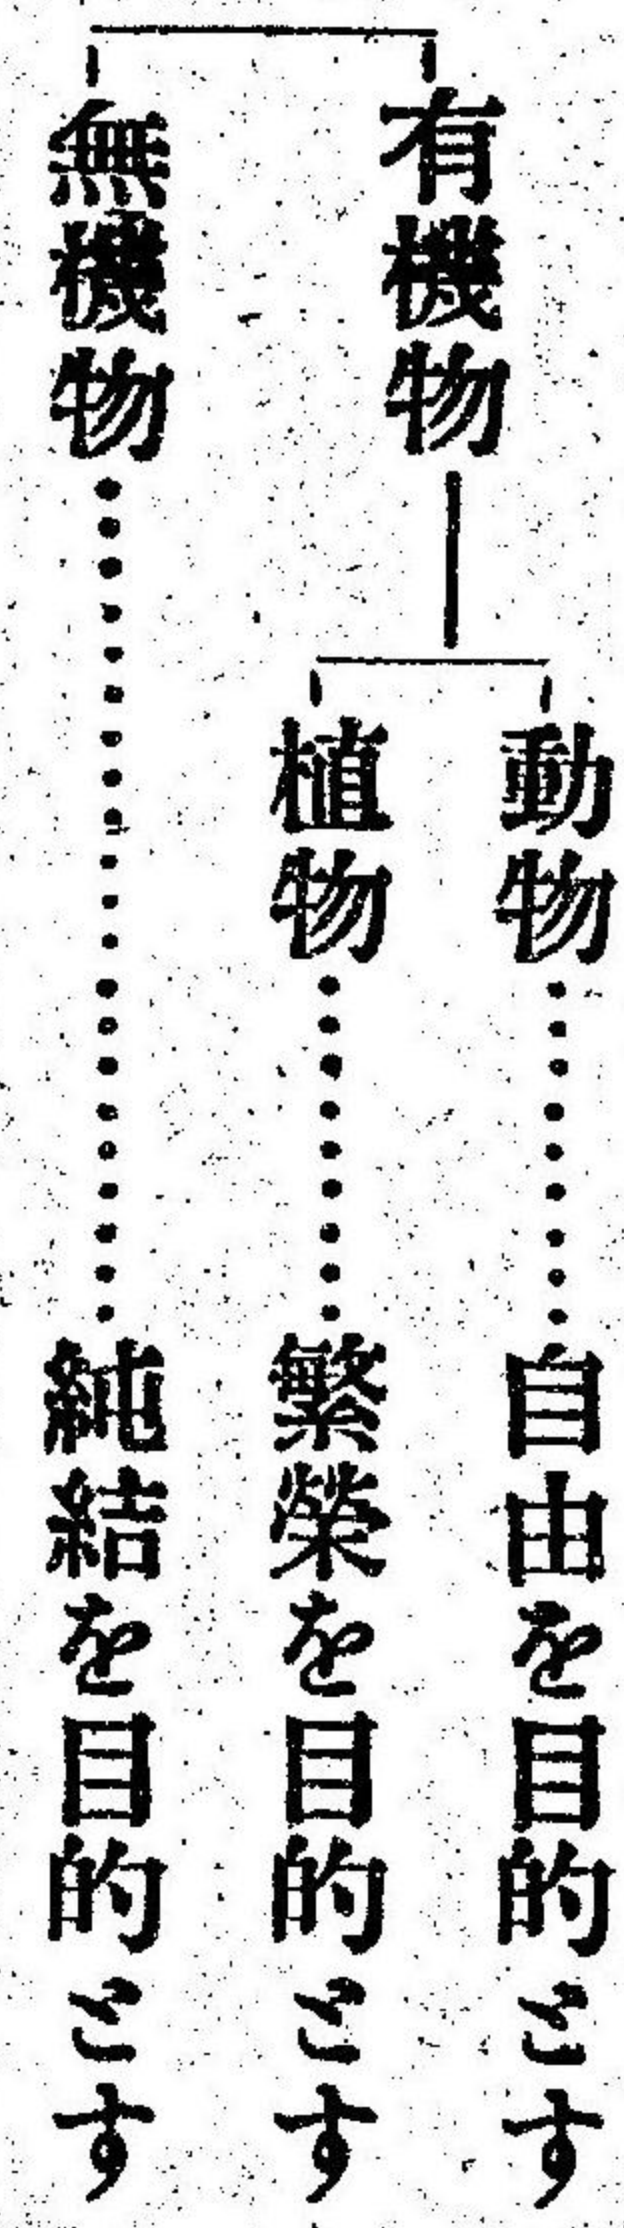 有機物
動物………自由を目的とす
植物………繁榮を目的とす
無機物…………………純結を目的とす